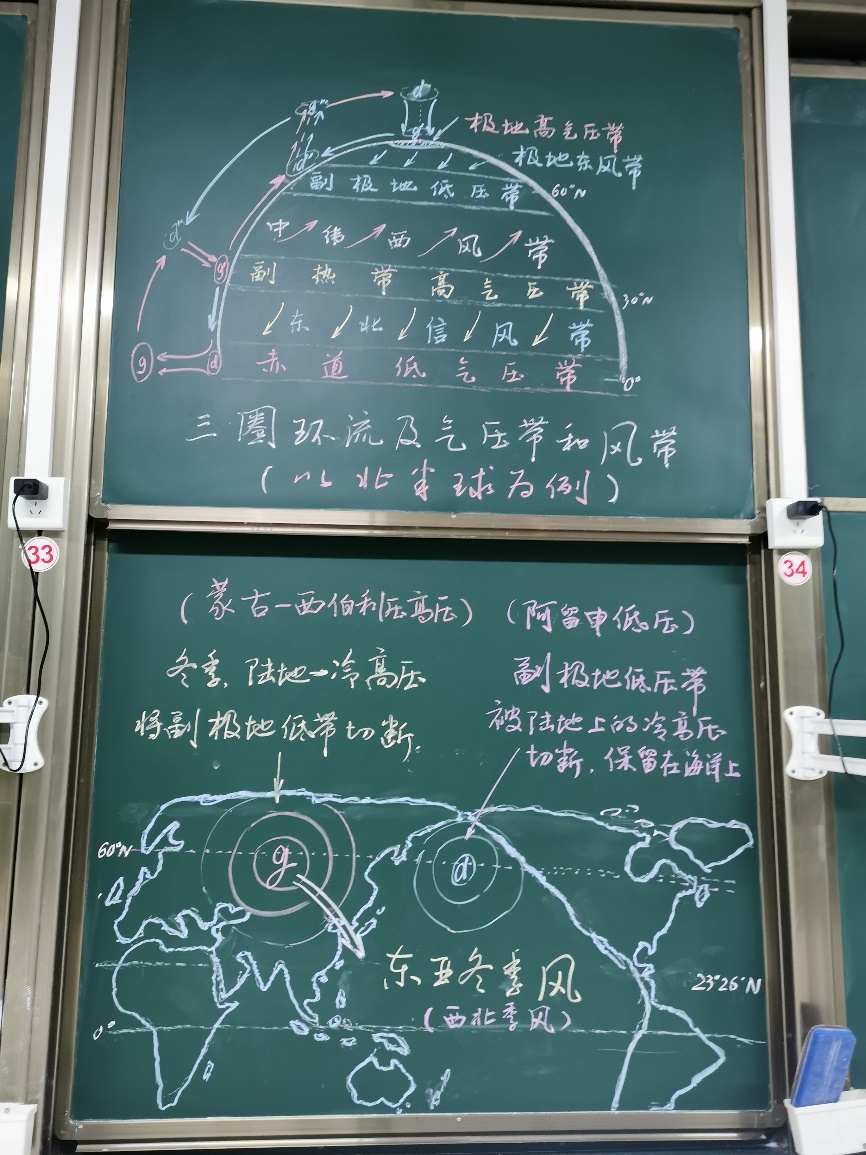 极地高气压带
极地东风带
副极地低压带
60°N
中纬西风带
副热带高气压带
30°N
东北信风带
赤道低气压带
0°
g
d
三圈环流及气压带和风带
(以北半球为例)
33
34
(蒙古-西伯利压高压)
(阿留申低压)
冬季,陆地→冷高压
将副极地低带切断.
副极地低压带
被陆地上的冷高压
切断,保留在海洋上
60°N
g
d
东亚冬季风
(西北季风)
23°26'N
0°